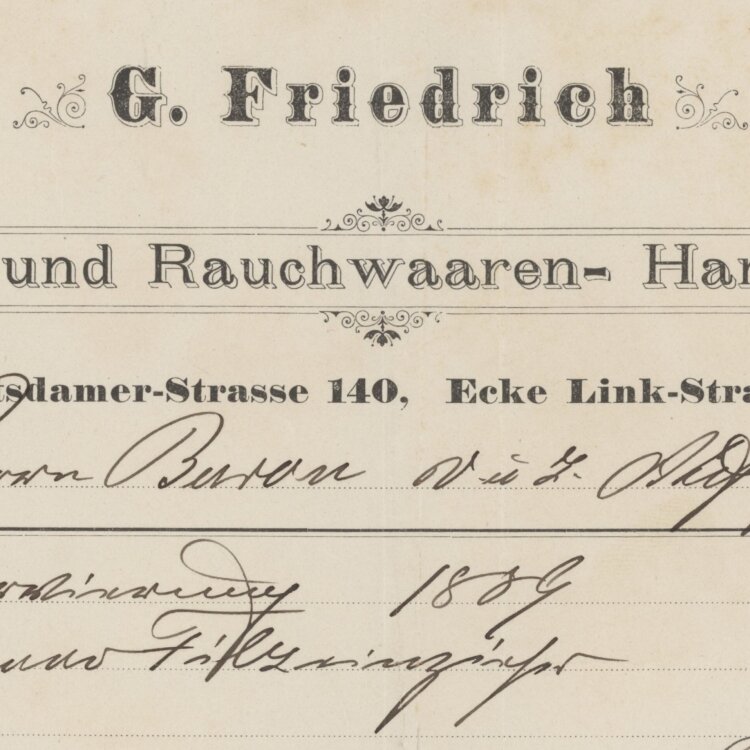 G. Friedrich
und Rauchwaaren- Han
tsdamer-Strasse 140, Ecke Link-Stra
rrn Baron v u z.
1889